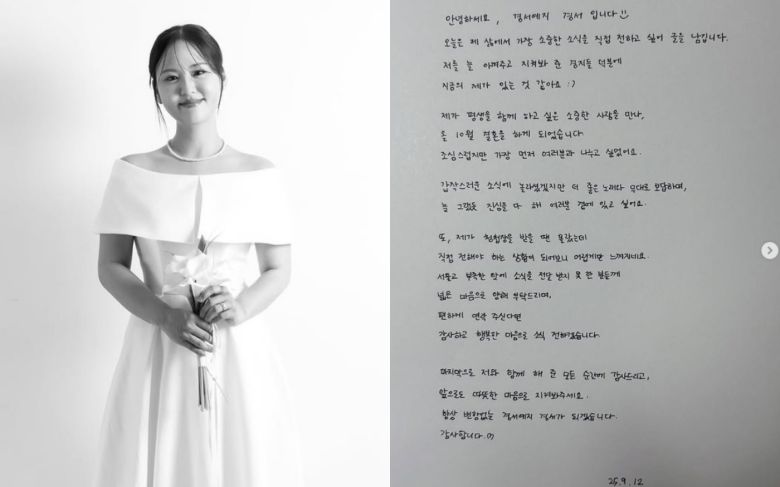 안녕하세요, 경서예지 경서 입니다
오늘은 제 삶에서 가장 소중한 소식을 직접 전하고 싶어 글을 남깁니다.
저를 늘 아껴주고 지켜봐 준 경지들 덕분에
지금의 제가 있는 것 같아요 :)
제가 평생을 함께 하고 싶은 소중한 사람을 만나,
올 10월 결혼을 하게 되었습니다
조심스럽지만 가장 먼저 여러분과 나누고 싶었어요.
갑작스러운 소식에 놀라셨겠지만 더 좋은 노래와 무대로 보답하며,
늘 그랬듯 진심을 다 해 여러분 곁에 있고 싶어요.
또, 제가 청첩장을 받을 땐 몰랐는데
직접 전해야 하는 상황이 되어보니 어렵게만 느껴지네요.
서툴고 부족한 탓에 소식을 전달 받지 못 한 분들께
넓은 마음으로 양해 부탁드리며,
편하게 연락 주신다면
감사하고 행복한 마음으로 소식 전하겠습니다.
마지막으로 저와 함께 해 준 모든 순간에 감사드리고,
앞으로도 따뜻한 마음으로 지켜봐주세요.
항상 변함없는 경서예지 경서가 되겠습니다.
감사합니다
25.9.12